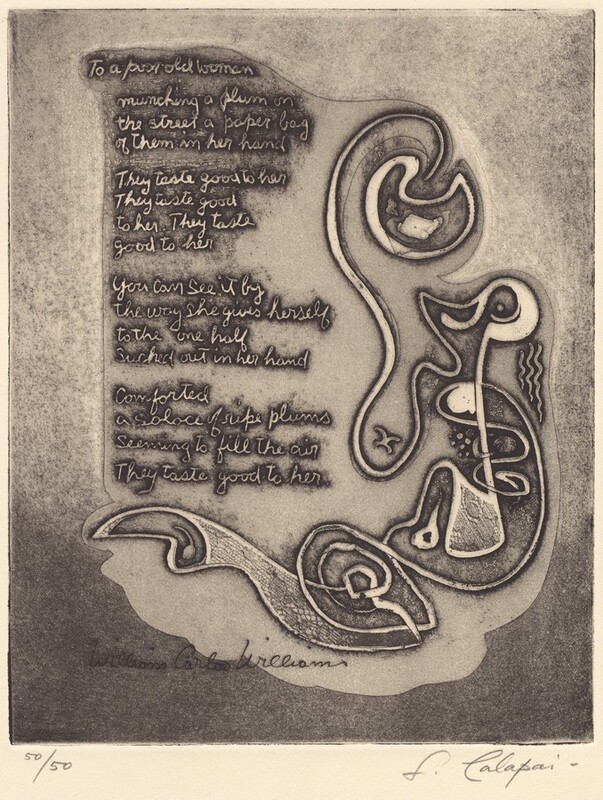 To a poor old woman
munching a plum on
the street a paper bag
of them in her hand
They taste good to her
They taste good
to her. They taste
good to her
You can see it by
the way she gives herself
to the one half
sucked out in her hand
Comforted
a solace of ripe plums
seeming to fill the air
They taste good to her.
William Carlos Williams
50/50
L. Calapai -